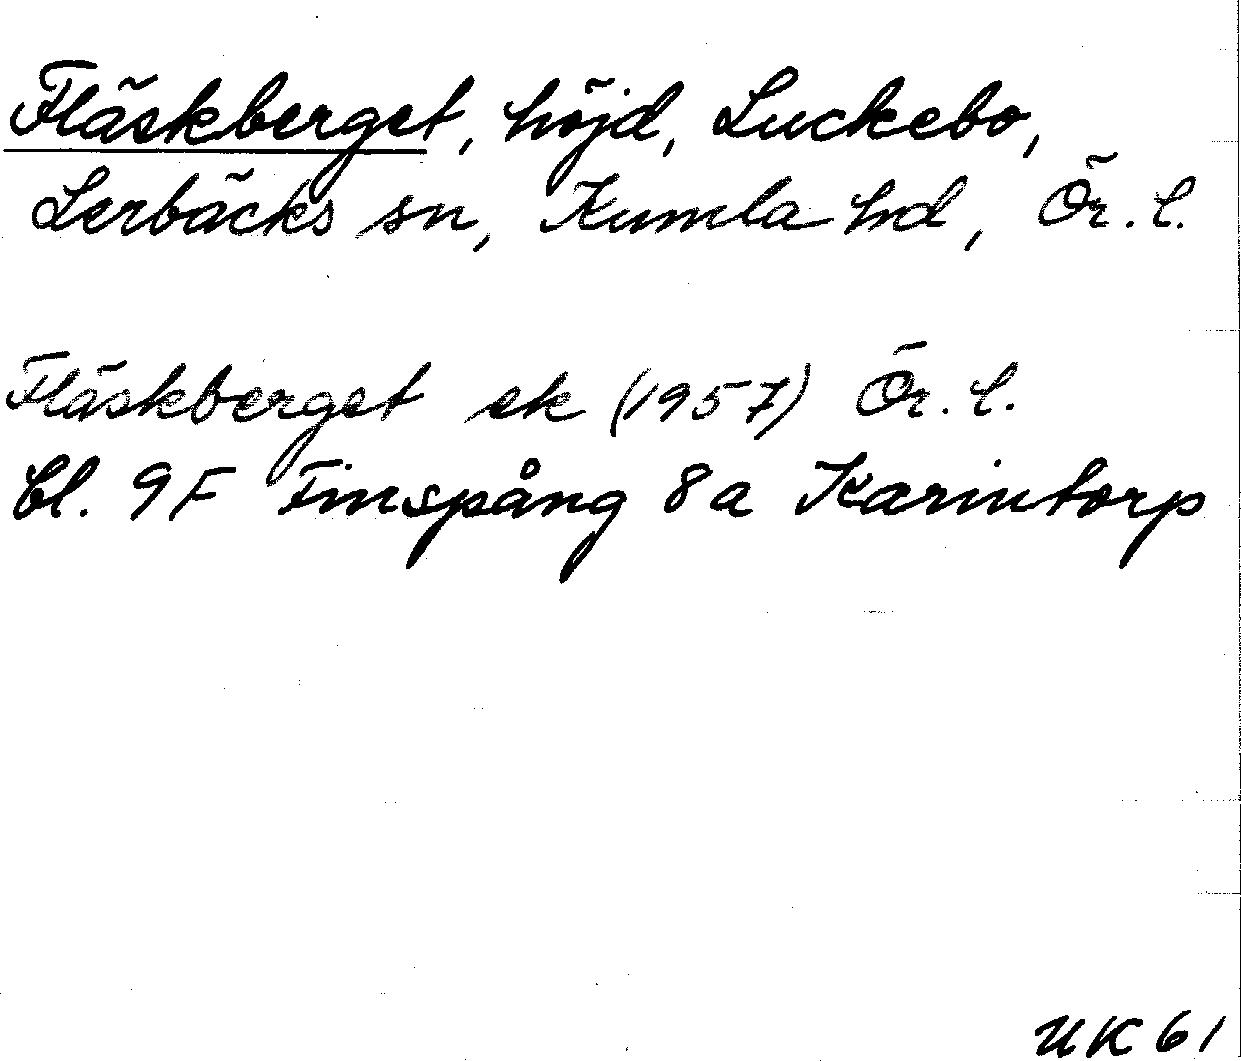 Fläskberget, höjd, Luckebo,
Lerbäcks sn, Kumla hd, Ör. l.
Fläskberget ek (1957) Ör. l.
bl. 9F Finspång 8a Karintorp
UK 61